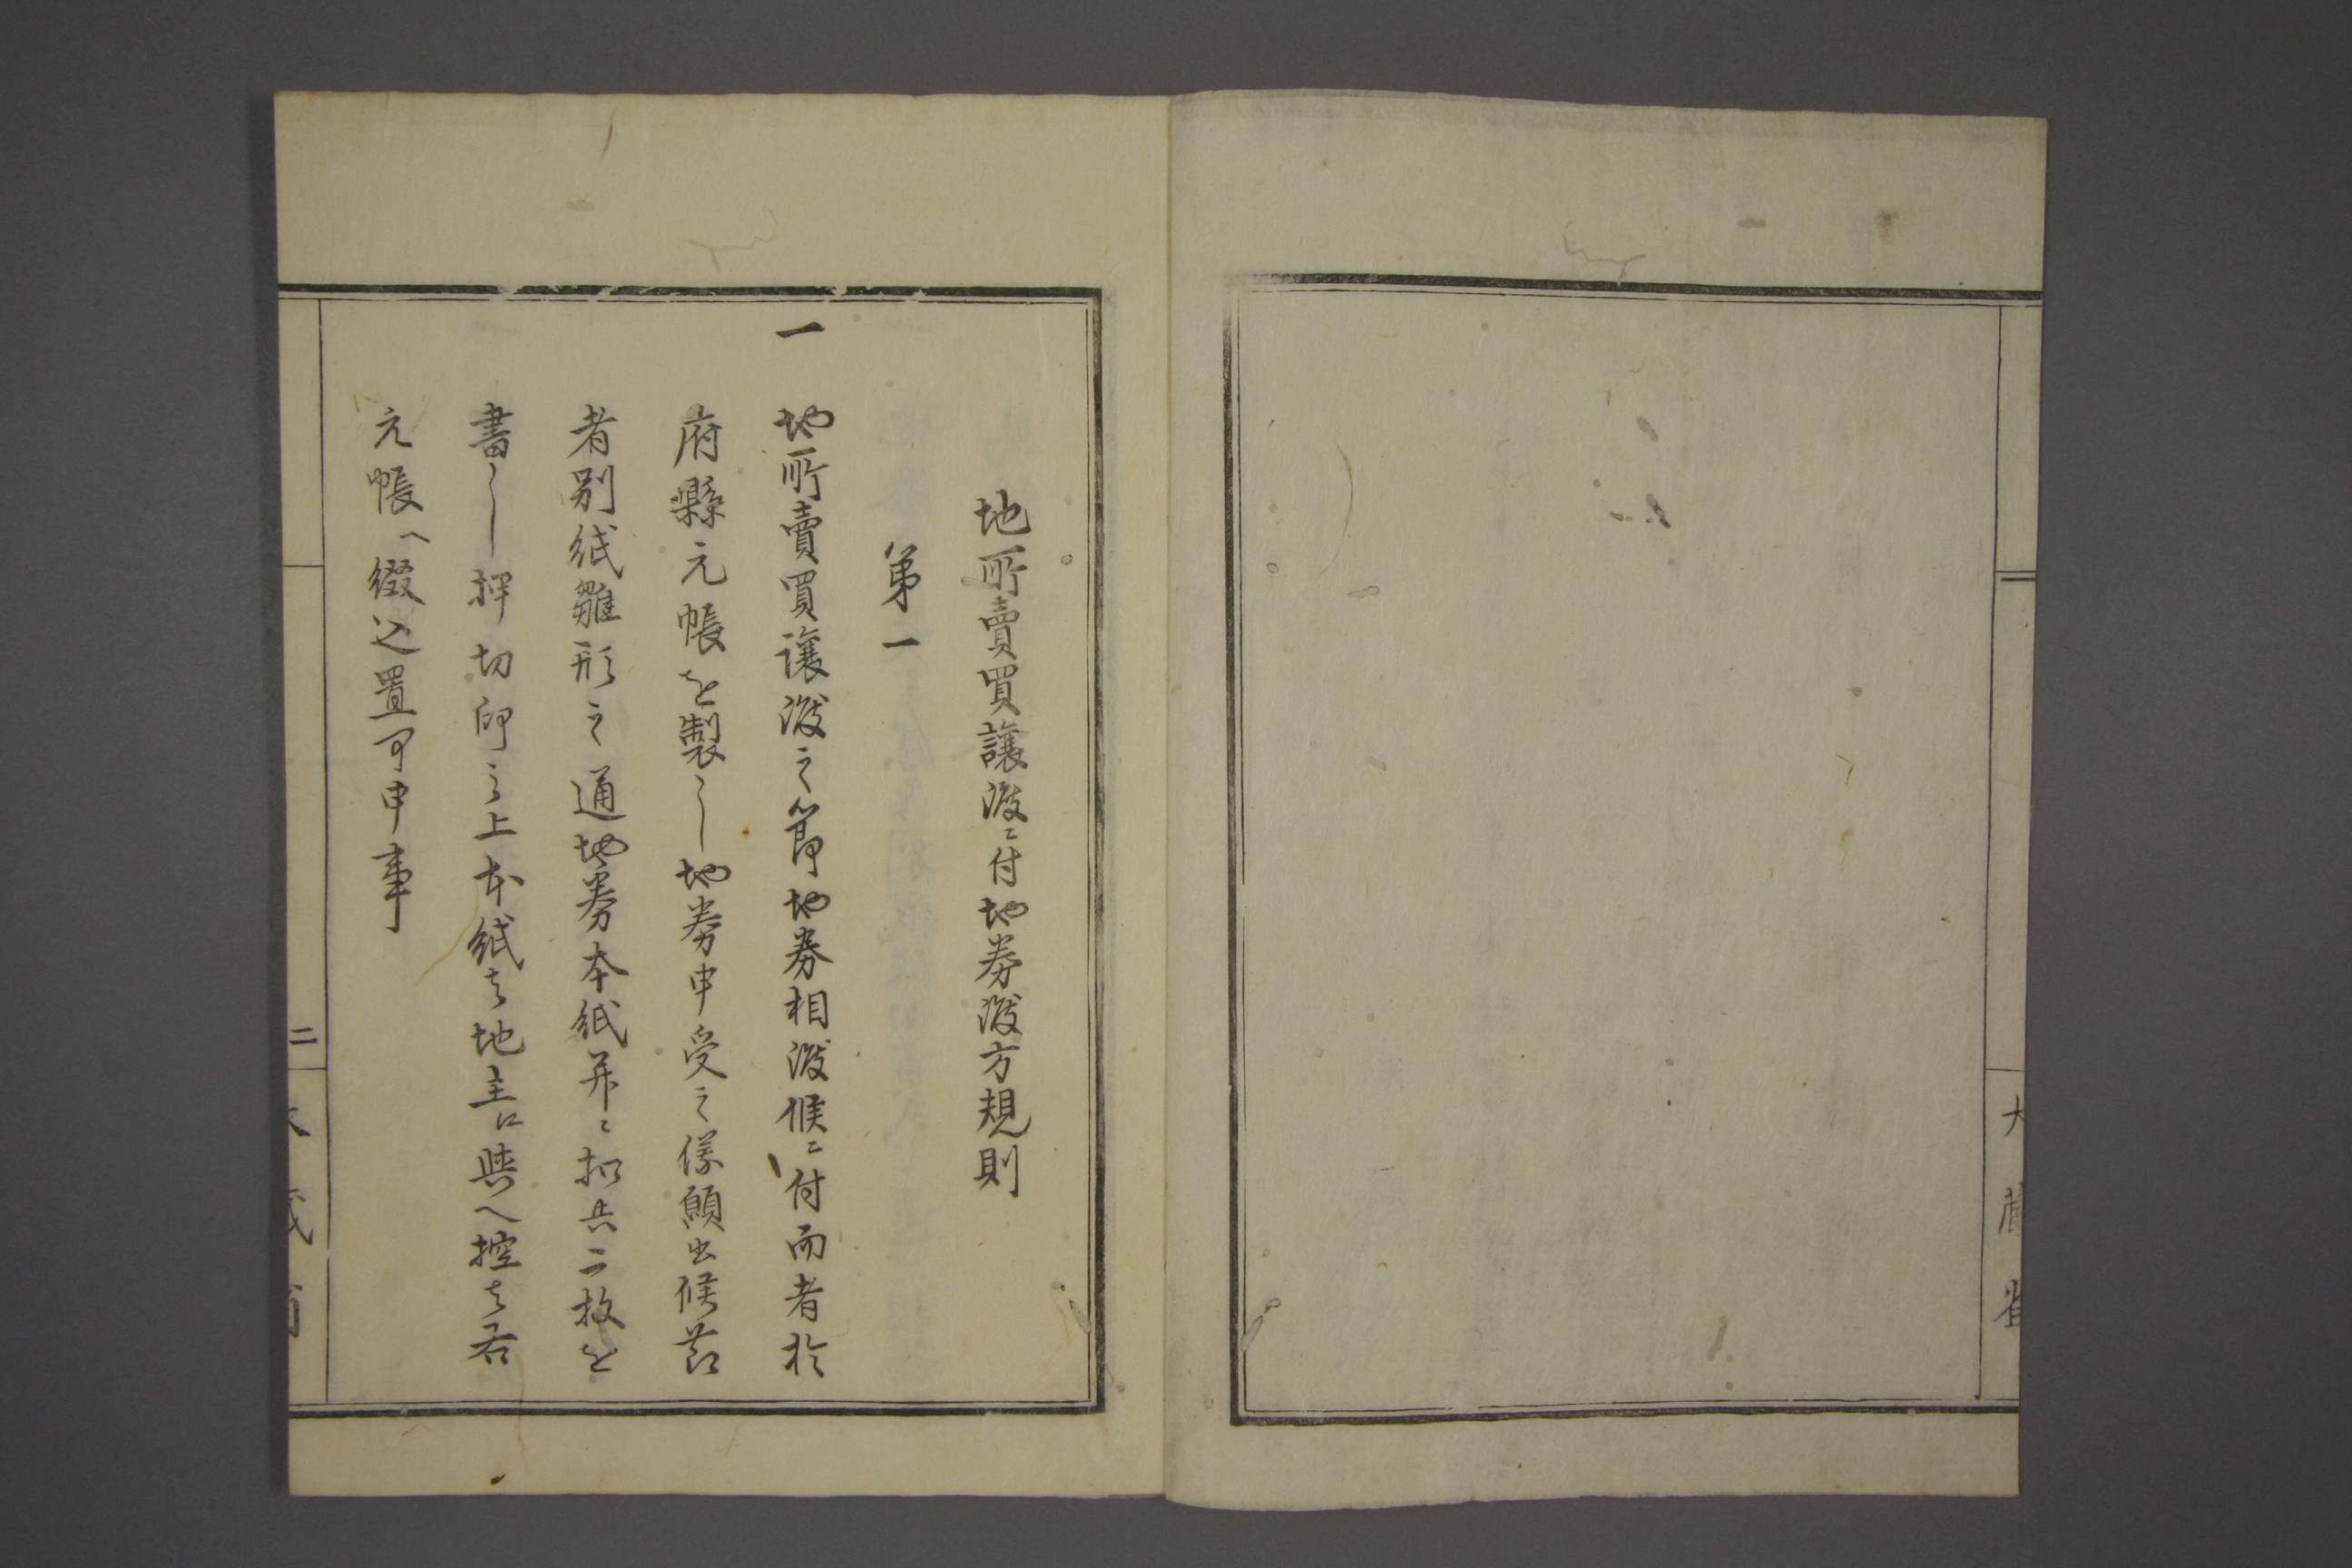 地所賣買讓渡ニ付地券渡方規則
第一
一 地所賣買讓渡之節地券相渡候ニ付而者於
府縣元帳を製し地券申受之儀願出候節
者別紙雛形之通地券本紙并ニ扣共二枚を
書し押切印之上本紙は地主江與へ控は右
元帳へ綴込置可申事
二
大藏省
大藏省